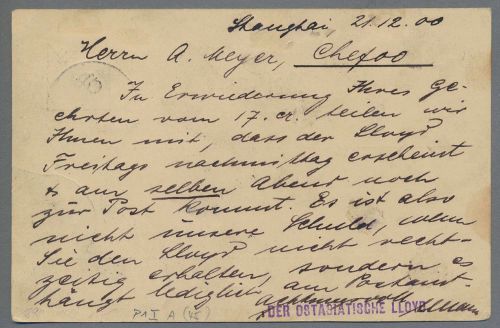 Shanghai, 21.12.00
Herrn A. Meyer, Chefoo
In Erwiederung Ihres Ge-
ehrten vom 17. cr. teilen wir
Ihnen mit, dass der Lloyd
Freitags nachmittag erscheint
& am selben Abend noch
zur Post kommt. Es ist also
nicht unsere Schuld, wenn
Sie den Lloyd nicht recht-
zeitig erhalten, sondern es
hängt lediglich am Postamt
Achtungsvoll
DER OSTASIATISCHE LLOYD
P1 I A